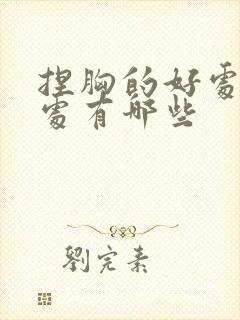 捏胸的好處
處有哪些
劉完素